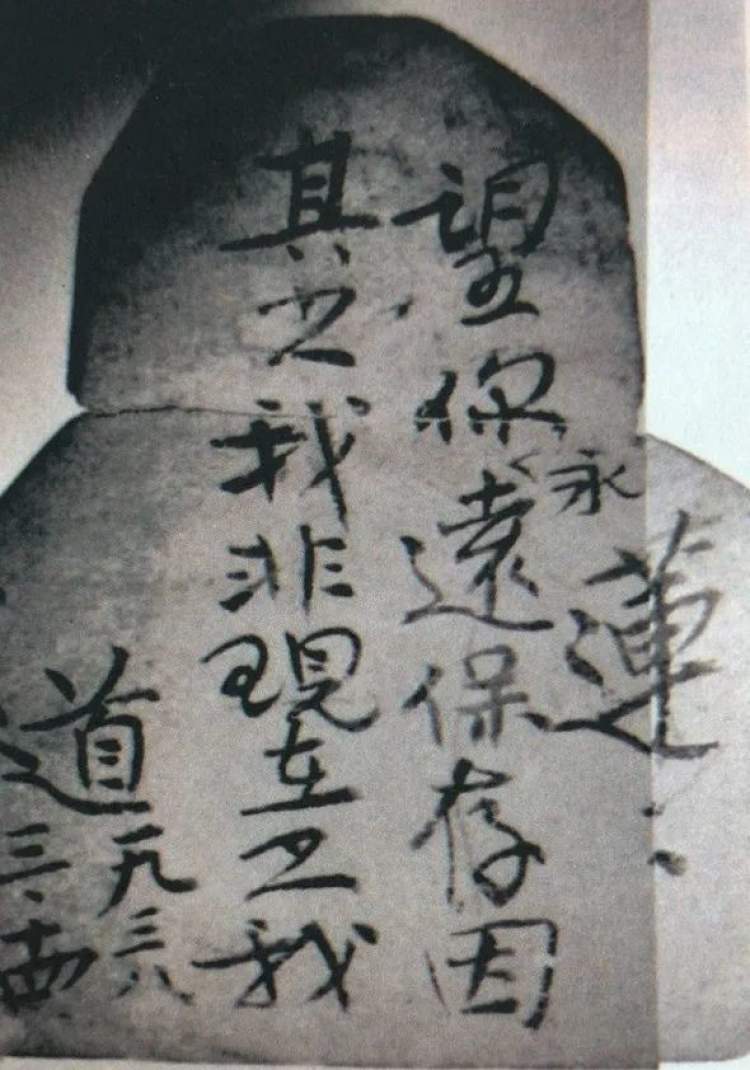 蓮：
望你永遠保存因
其之我非現在之我
道
一九三八
三、西